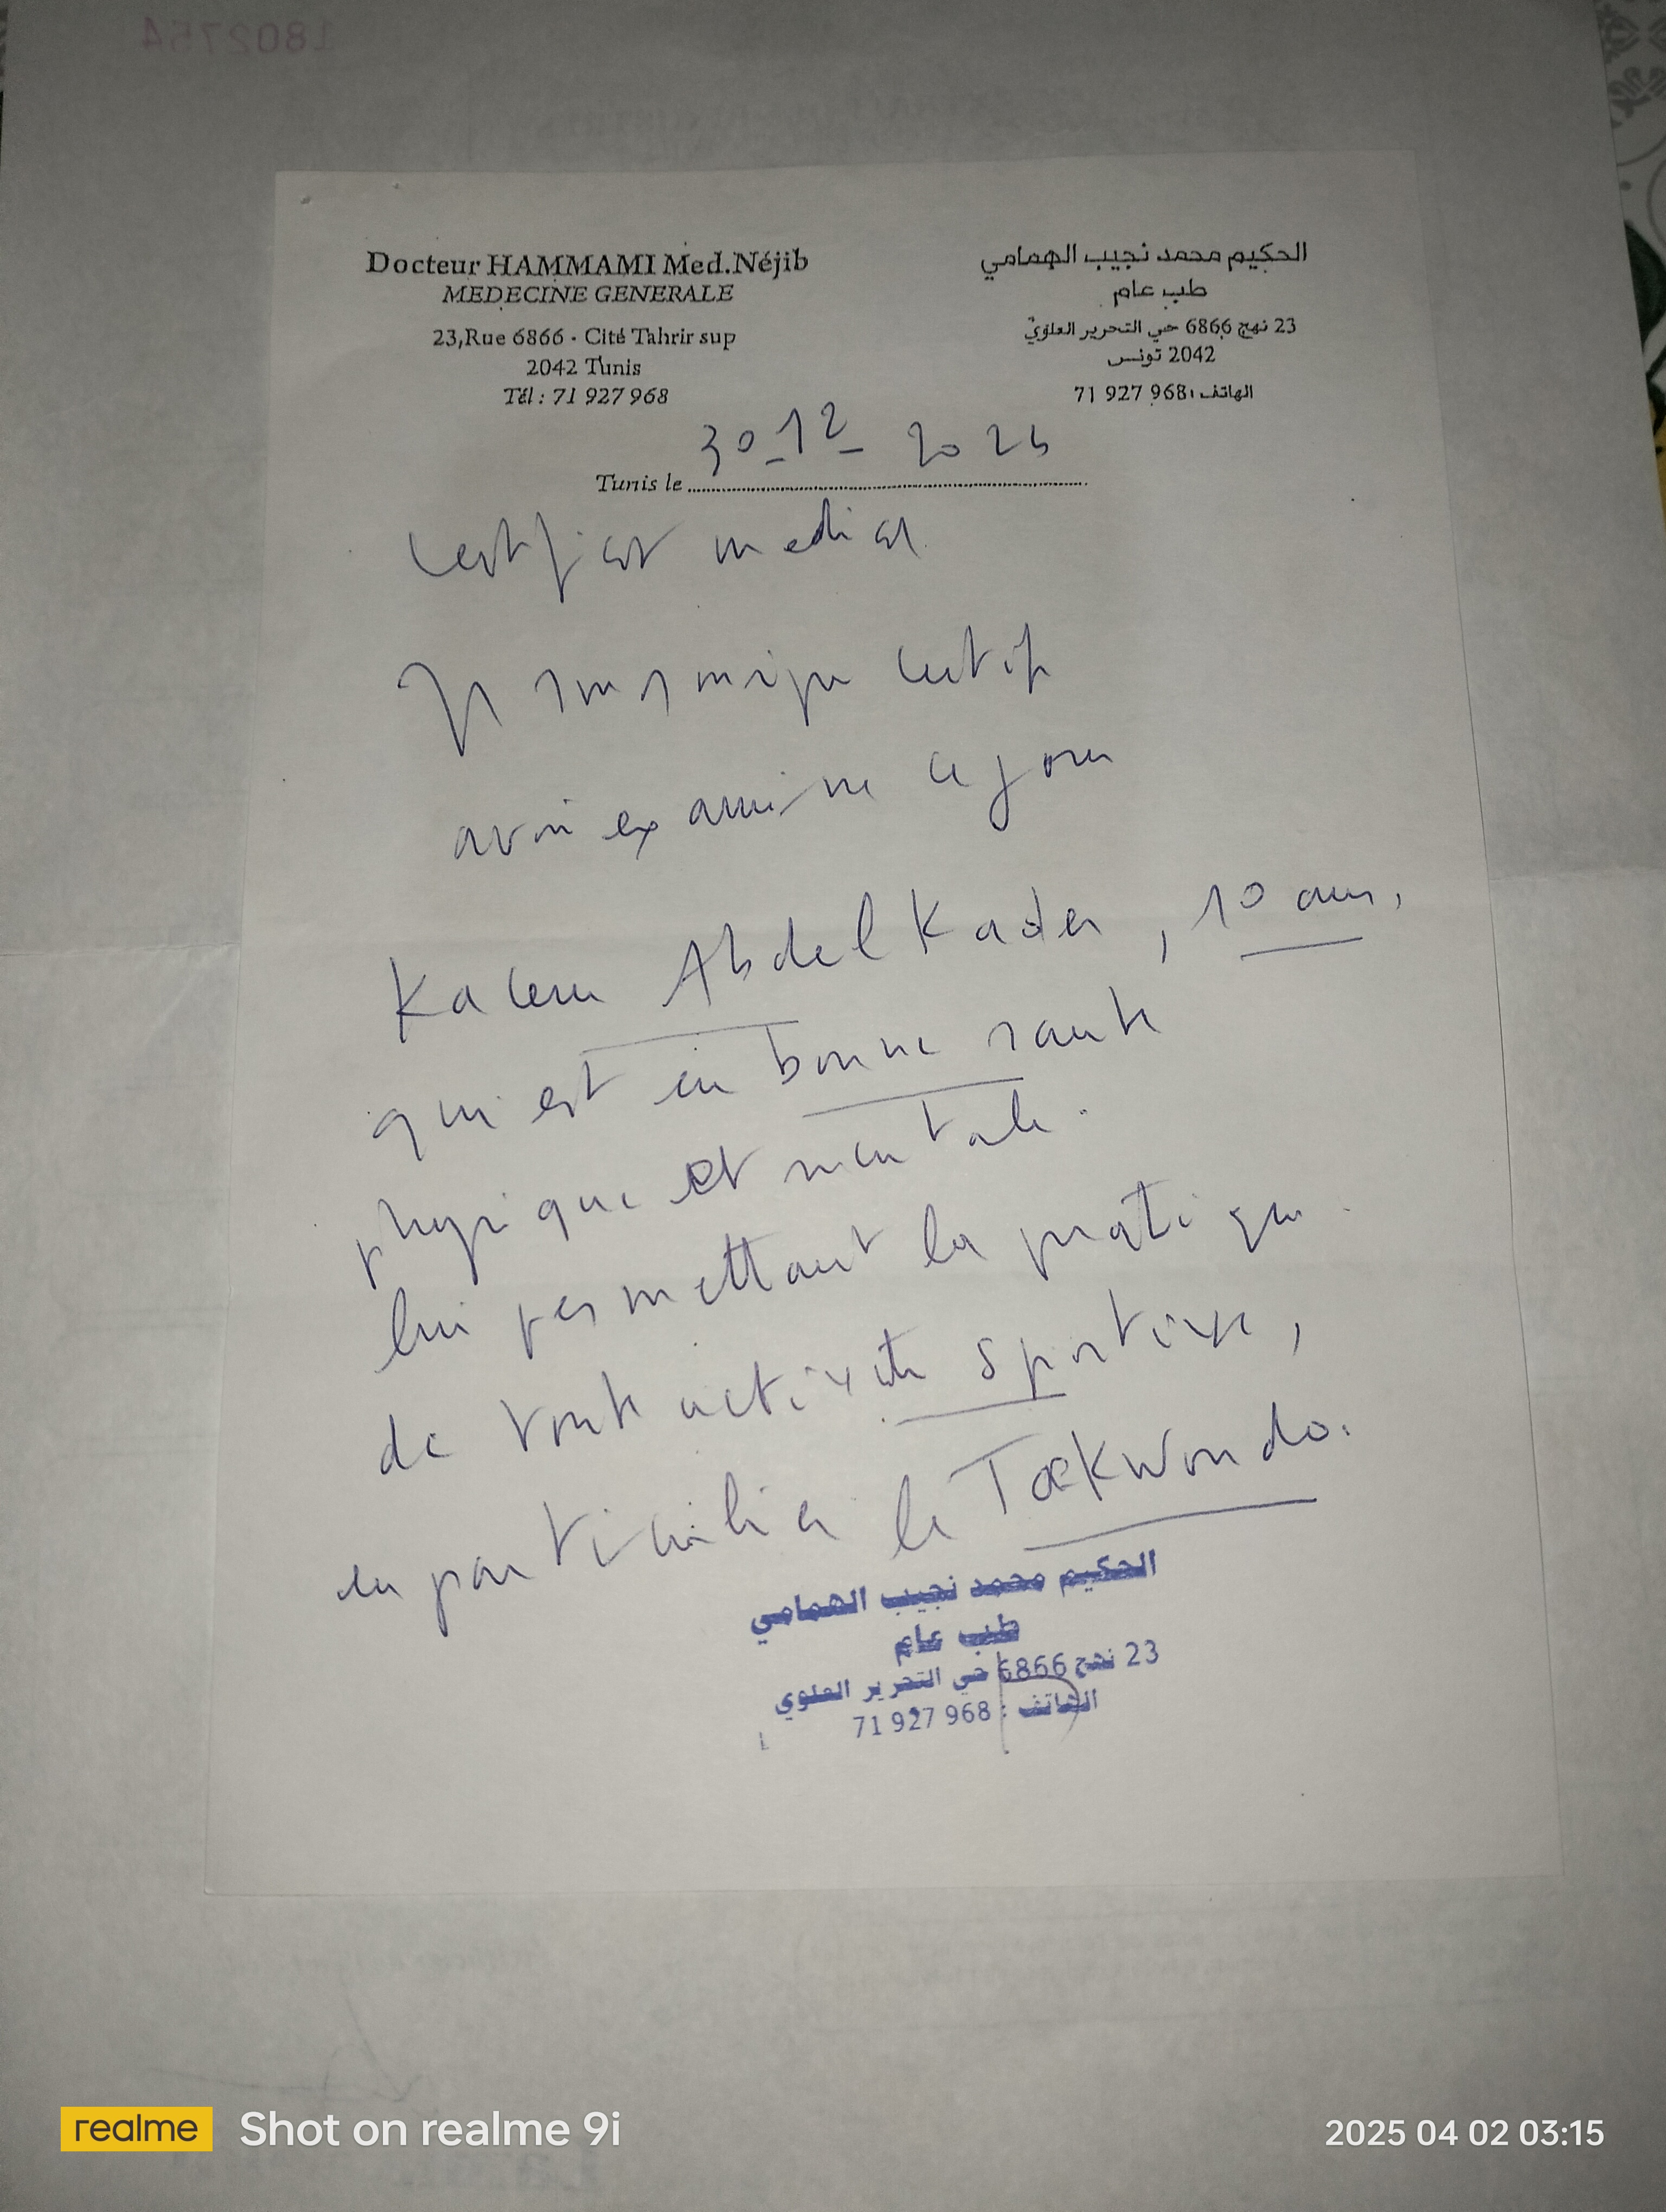 1802754
Docteur HAMMAMI Med.Néjib
MEDECINE GENERALE
23,Rue 6866 - Cité Tahrir sup
2042 Tunis
Tél : 71 927 968
الحكيم محمد نجيب الهمامي
طب عام
23 نهج 6866 حي التحرير العلوي
2042 تونس
الهاتف: 71 927 968
Tunis le 30-12-
Certificat medical
Je soussigné certifie
avoir examiné ce jour
Kacem Abdel Kader, 10 ans,
qui est en bonne santé
physique et mentale.
lui permettant la pratique
de toute activité sportive,
en particulier le Taekwondo.
الحكيم محمد نجيب الهمامي
طب عام
23 نهج 6866 حي التحرير العلوي
الهاتف : 71 927 968
realme Shot on realme 9i
2025 04 02 03:15